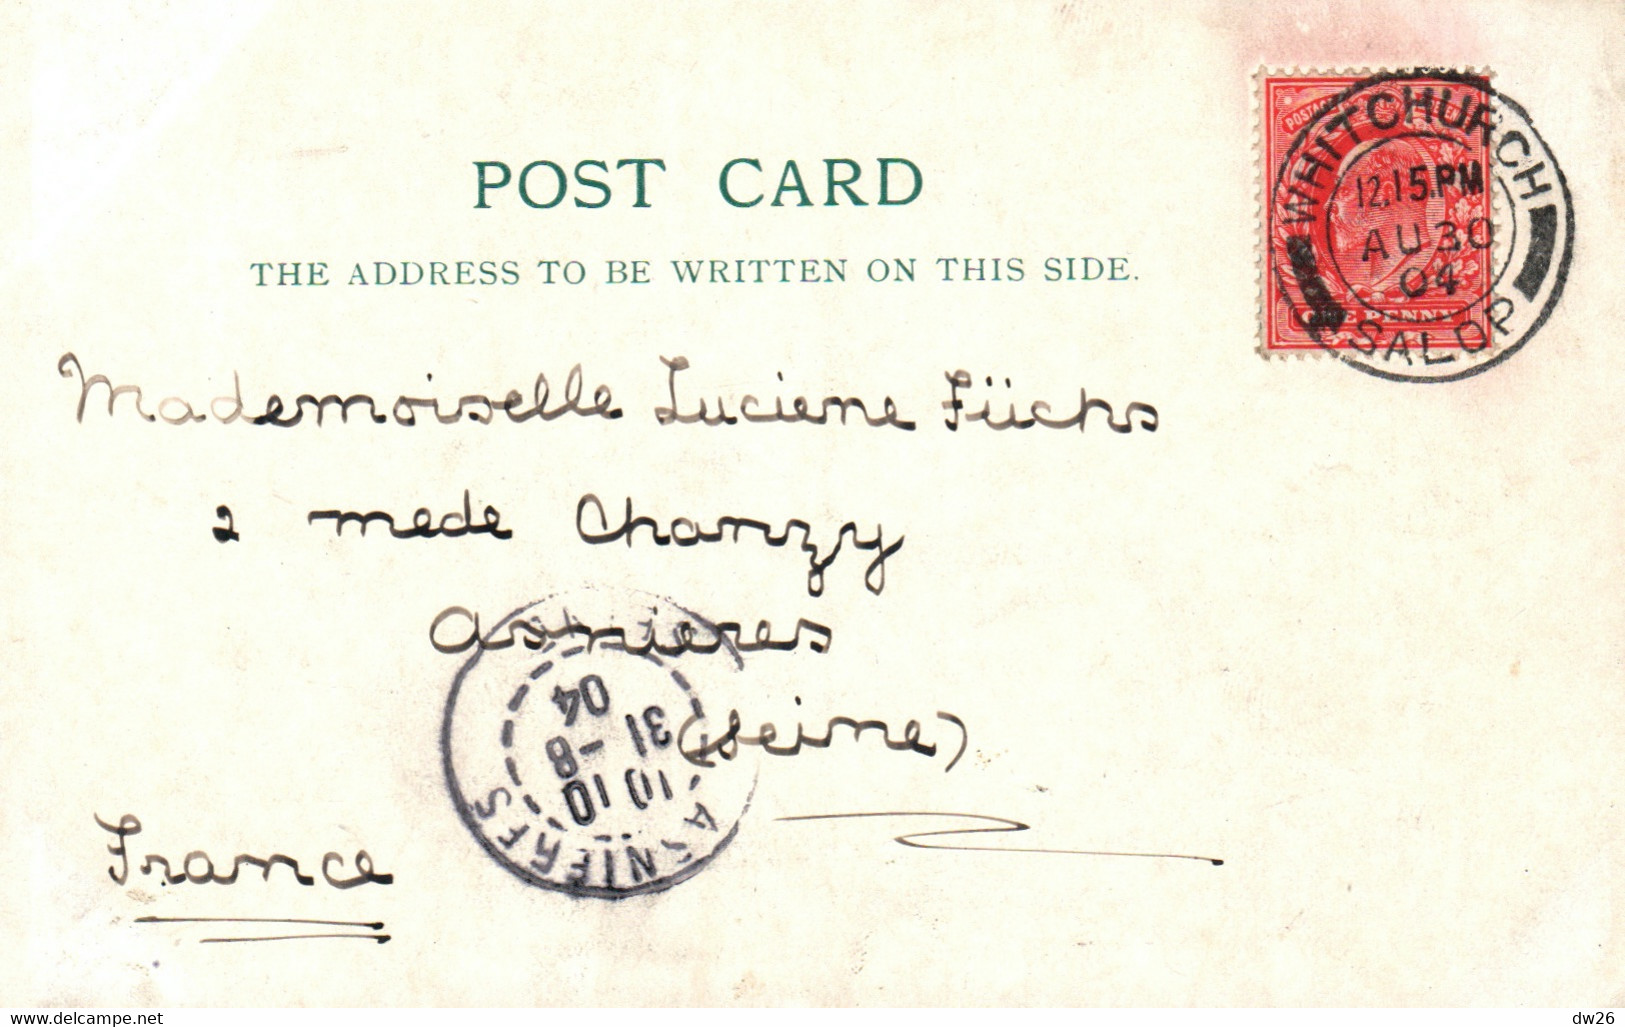 POST CARD
THE ADDRESS TO BE WRITTEN ON THIS SIDE.
POSTAGE
WHITCHURCH
12.15.PM
AU 30
04
SALOP
ONE PENNY
Mademoiselle Luciene Füchs
2 mede Chanzy
Asnieres
(Seine)
France
ASNIERES
10 10
31 -8
04
delcampe.net
dw26